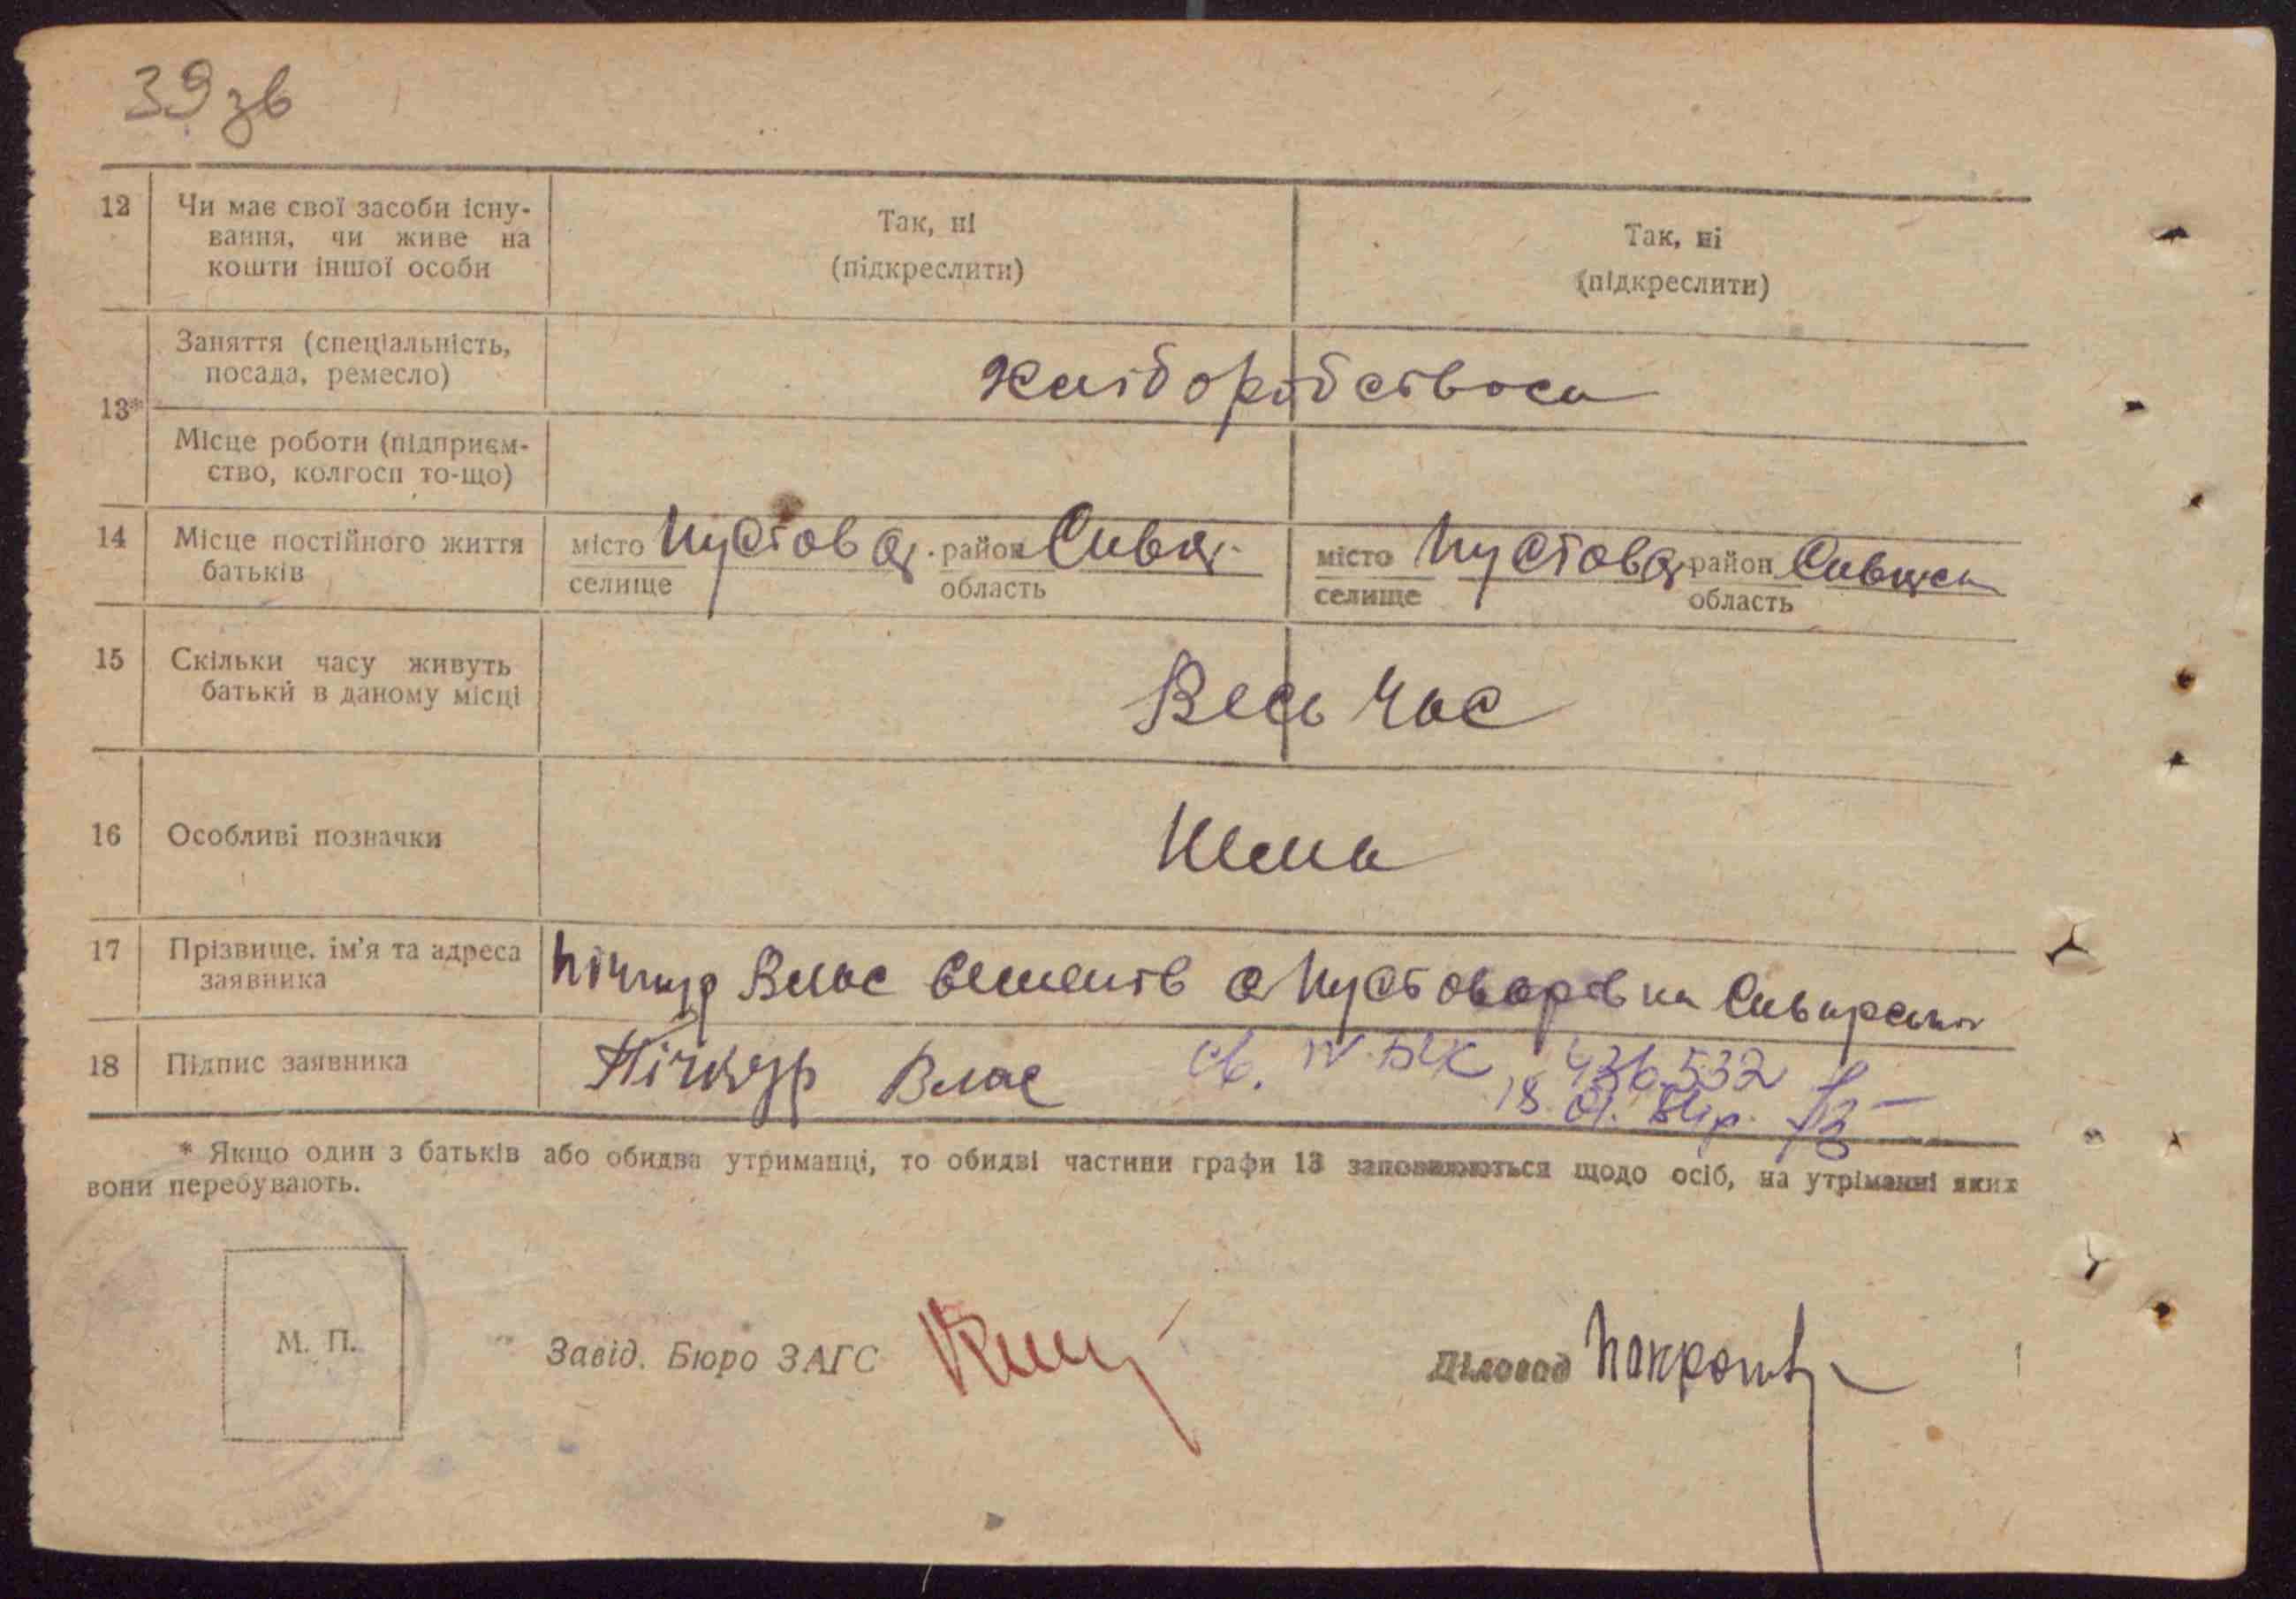 39 зв
12 Чи має свої засоби існу-
вання, чи живе на
кошти іншої особи
Так, ні
(підкреслити)
Так, ні
(підкреслити)
13*
Заняття (спеціальність,
посада, ремесло)
Хліборобством
Місце роботи (підприєм-
ство, колгосп то-що)
14 Місце постійного життя
батьків
місто Пустовар. район Сквир.
селище область
місто Пустовар район Сквирськ
селище область
15 Скільки часу живуть
батьки в даному місці
Весь час
16 Особливі позначки
Нема
17 Прізвище, ім'я та адреса
заявника
Пічкур Влас Семенів с Пустоварівка Сквирський
18 Підпис заявника
Пічкур Влас
св. IV-БЧК 436532
18
* Якщо один з батьків або обидва утриманці, то обидві частини графи 13 заповнюються щодо осіб, на утріманні яких
вони перебувають.
М. П.
Завід. Бюро ЗАГС
Діловод